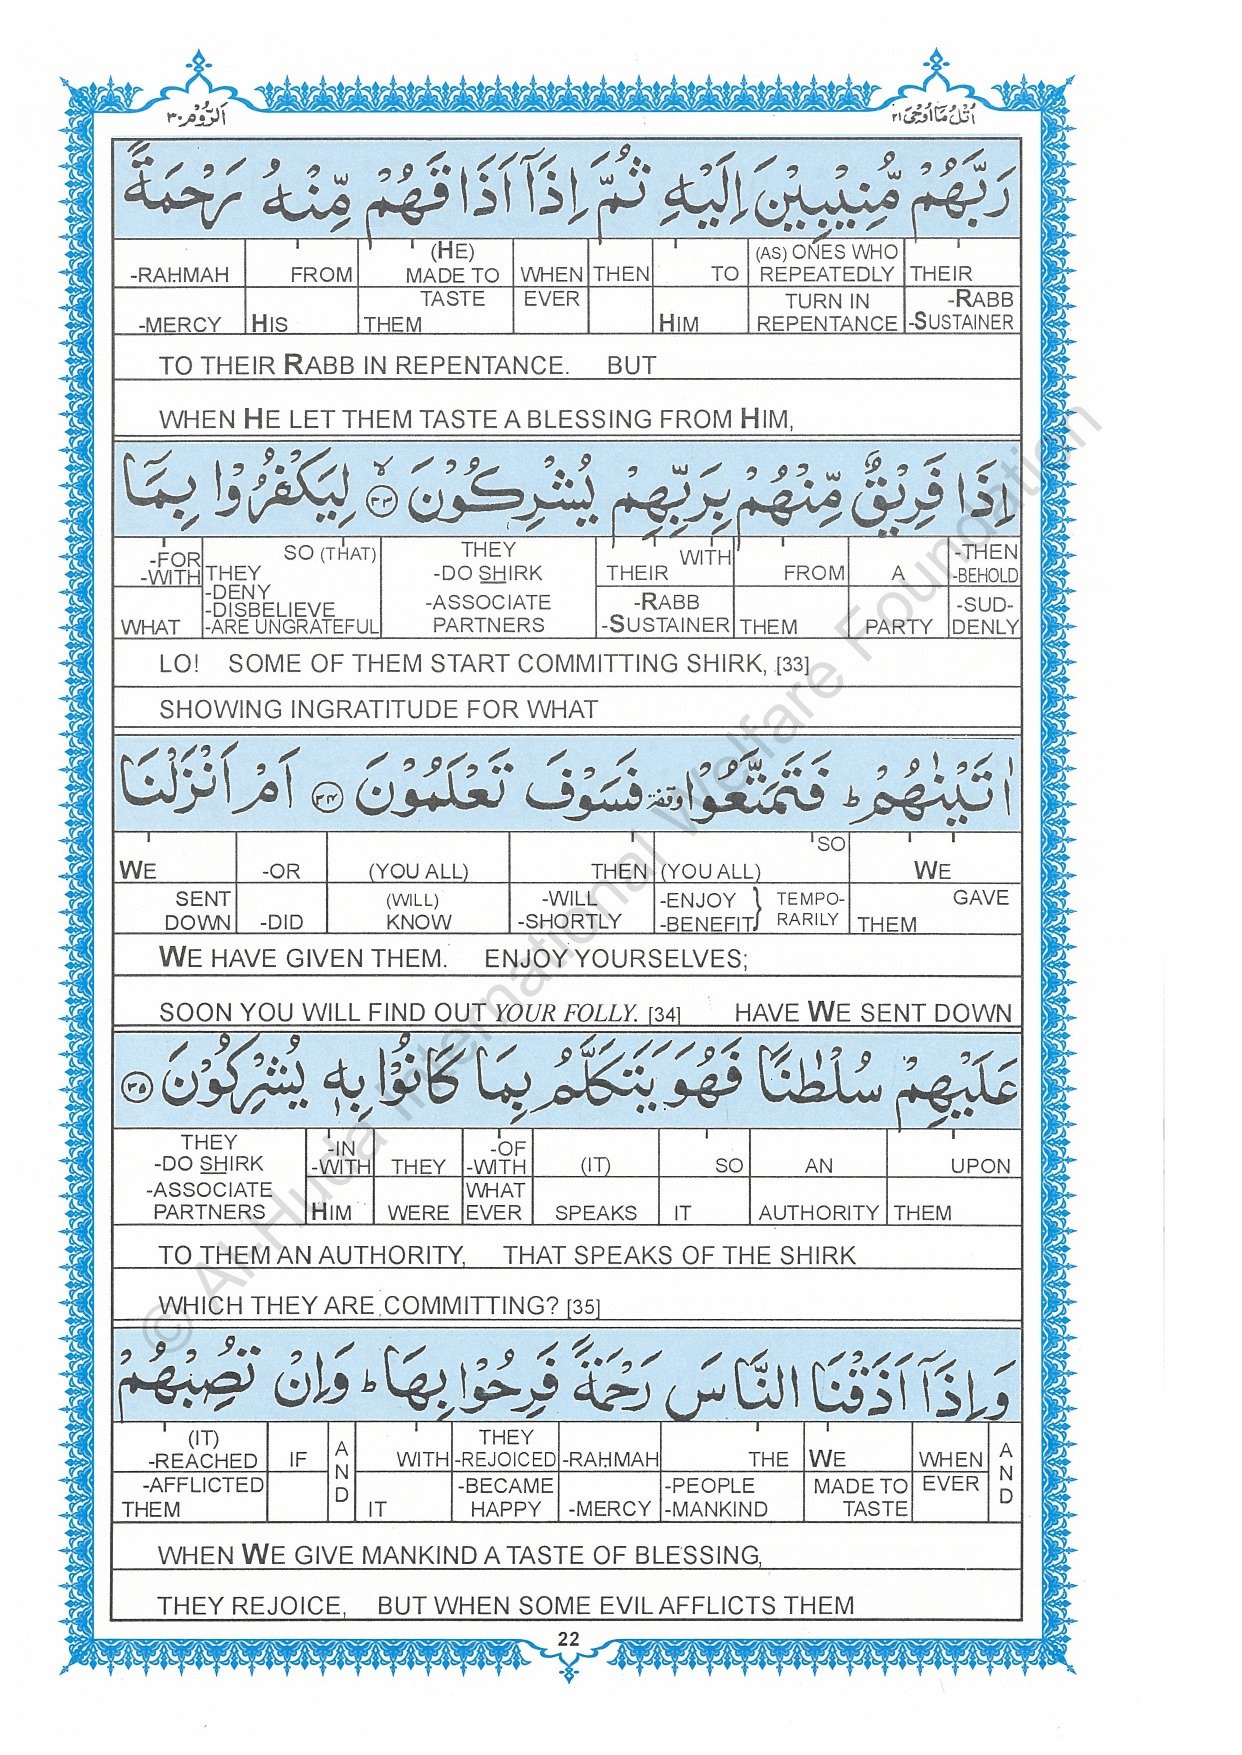 اُتْلُ مَآ اُوْحِیَ ۲۱
اَلرُّوْم ۳۰
رَبَّهُمْ مُّنِيْبِيْنَ اِلَيْهِ ثُمَّ اِذَآ اَذَاقَهُمْ مِّنْهُ رَحْمَةً
-RAHMAH FROM (HE) MADE TO WHEN THEN TO (AS) ONES WHO REPEATEDLY THEIR
-MERCY HIS TASTE THEM EVER HIM TURN IN REPENTANCE -RABB -SUSTAINER
TO THEIR RABB IN REPENTANCE. BUT
WHEN HE LET THEM TASTE A BLESSING FROM HIM,
اِذَا فَرِيْقٌ مِّنْهُمْ بِرَبِّهِمْ يُشْرِكُوْنَ ۙ ۳۳ لِيَكْفُرُوْا بِمَآ
-FOR -WITH SO (THAT) THEY THEY -DO SHIRK THEIR WITH FROM A -THEN -BEHOLD
WHAT -DENY -DISBELIEVE -ARE UNGRATEFUL -ASSOCIATE PARTNERS -RABB -SUSTAINER THEM PARTY -SUD- DENLY
LO! SOME OF THEM START COMMITTING SHIRK, [33]
SHOWING INGRATITUDE FOR WHAT
اٰتَيْنٰهُمْ ؕ فَتَمَتَّعُوْا وقفة فَسَوْفَ تَعْلَمُوْنَ ۳۴ اَمْ اَنْزَلْنَا
WE -OR (YOU ALL) THEN (YOU ALL) SO WE
SENT DOWN -DID (WILL) KNOW -WILL -SHORTLY -ENJOY -BENEFIT } TEMPO- RARILY GAVE THEM
WE HAVE GIVEN THEM. ENJOY YOURSELVES;
SOON YOU WILL FIND OUT YOUR FOLLY. [34] HAVE WE SENT DOWN
عَلَيْهِمْ سُلْطٰنًا فَهُوَ يَتَكَلَّمُ بِمَا كَانُوْا بِهٖ يُشْرِكُوْنَ ۳۵
THEY -DO SHIRK -IN -WITH THEY -OF -WITH (IT) SO AN UPON
-ASSOCIATE PARTNERS HIM WERE WHAT EVER SPEAKS IT AUTHORITY THEM
TO THEM AN AUTHORITY, THAT SPEAKS OF THE SHIRK
WHICH THEY ARE COMMITTING? [35]
وَاِذَآ اَذَقْنَا النَّاسَ رَحْمَةً فَرِحُوْا بِهَا ؕ وَاِنْ تُصِبْهُمْ
(IT) -REACHED IF AND WITH THEY -REJOICED -RAHMAH THE WE WHEN AND
-AFFLICTED THEM IT -BECAME HAPPY -MERCY -PEOPLE -MANKIND MADE TO TASTE EVER
WHEN WE GIVE MANKIND A TASTE OF BLESSING,
THEY REJOICE, BUT WHEN SOME EVIL AFFLICTS THEM
22
© Al-Huda International Welfare Foundation